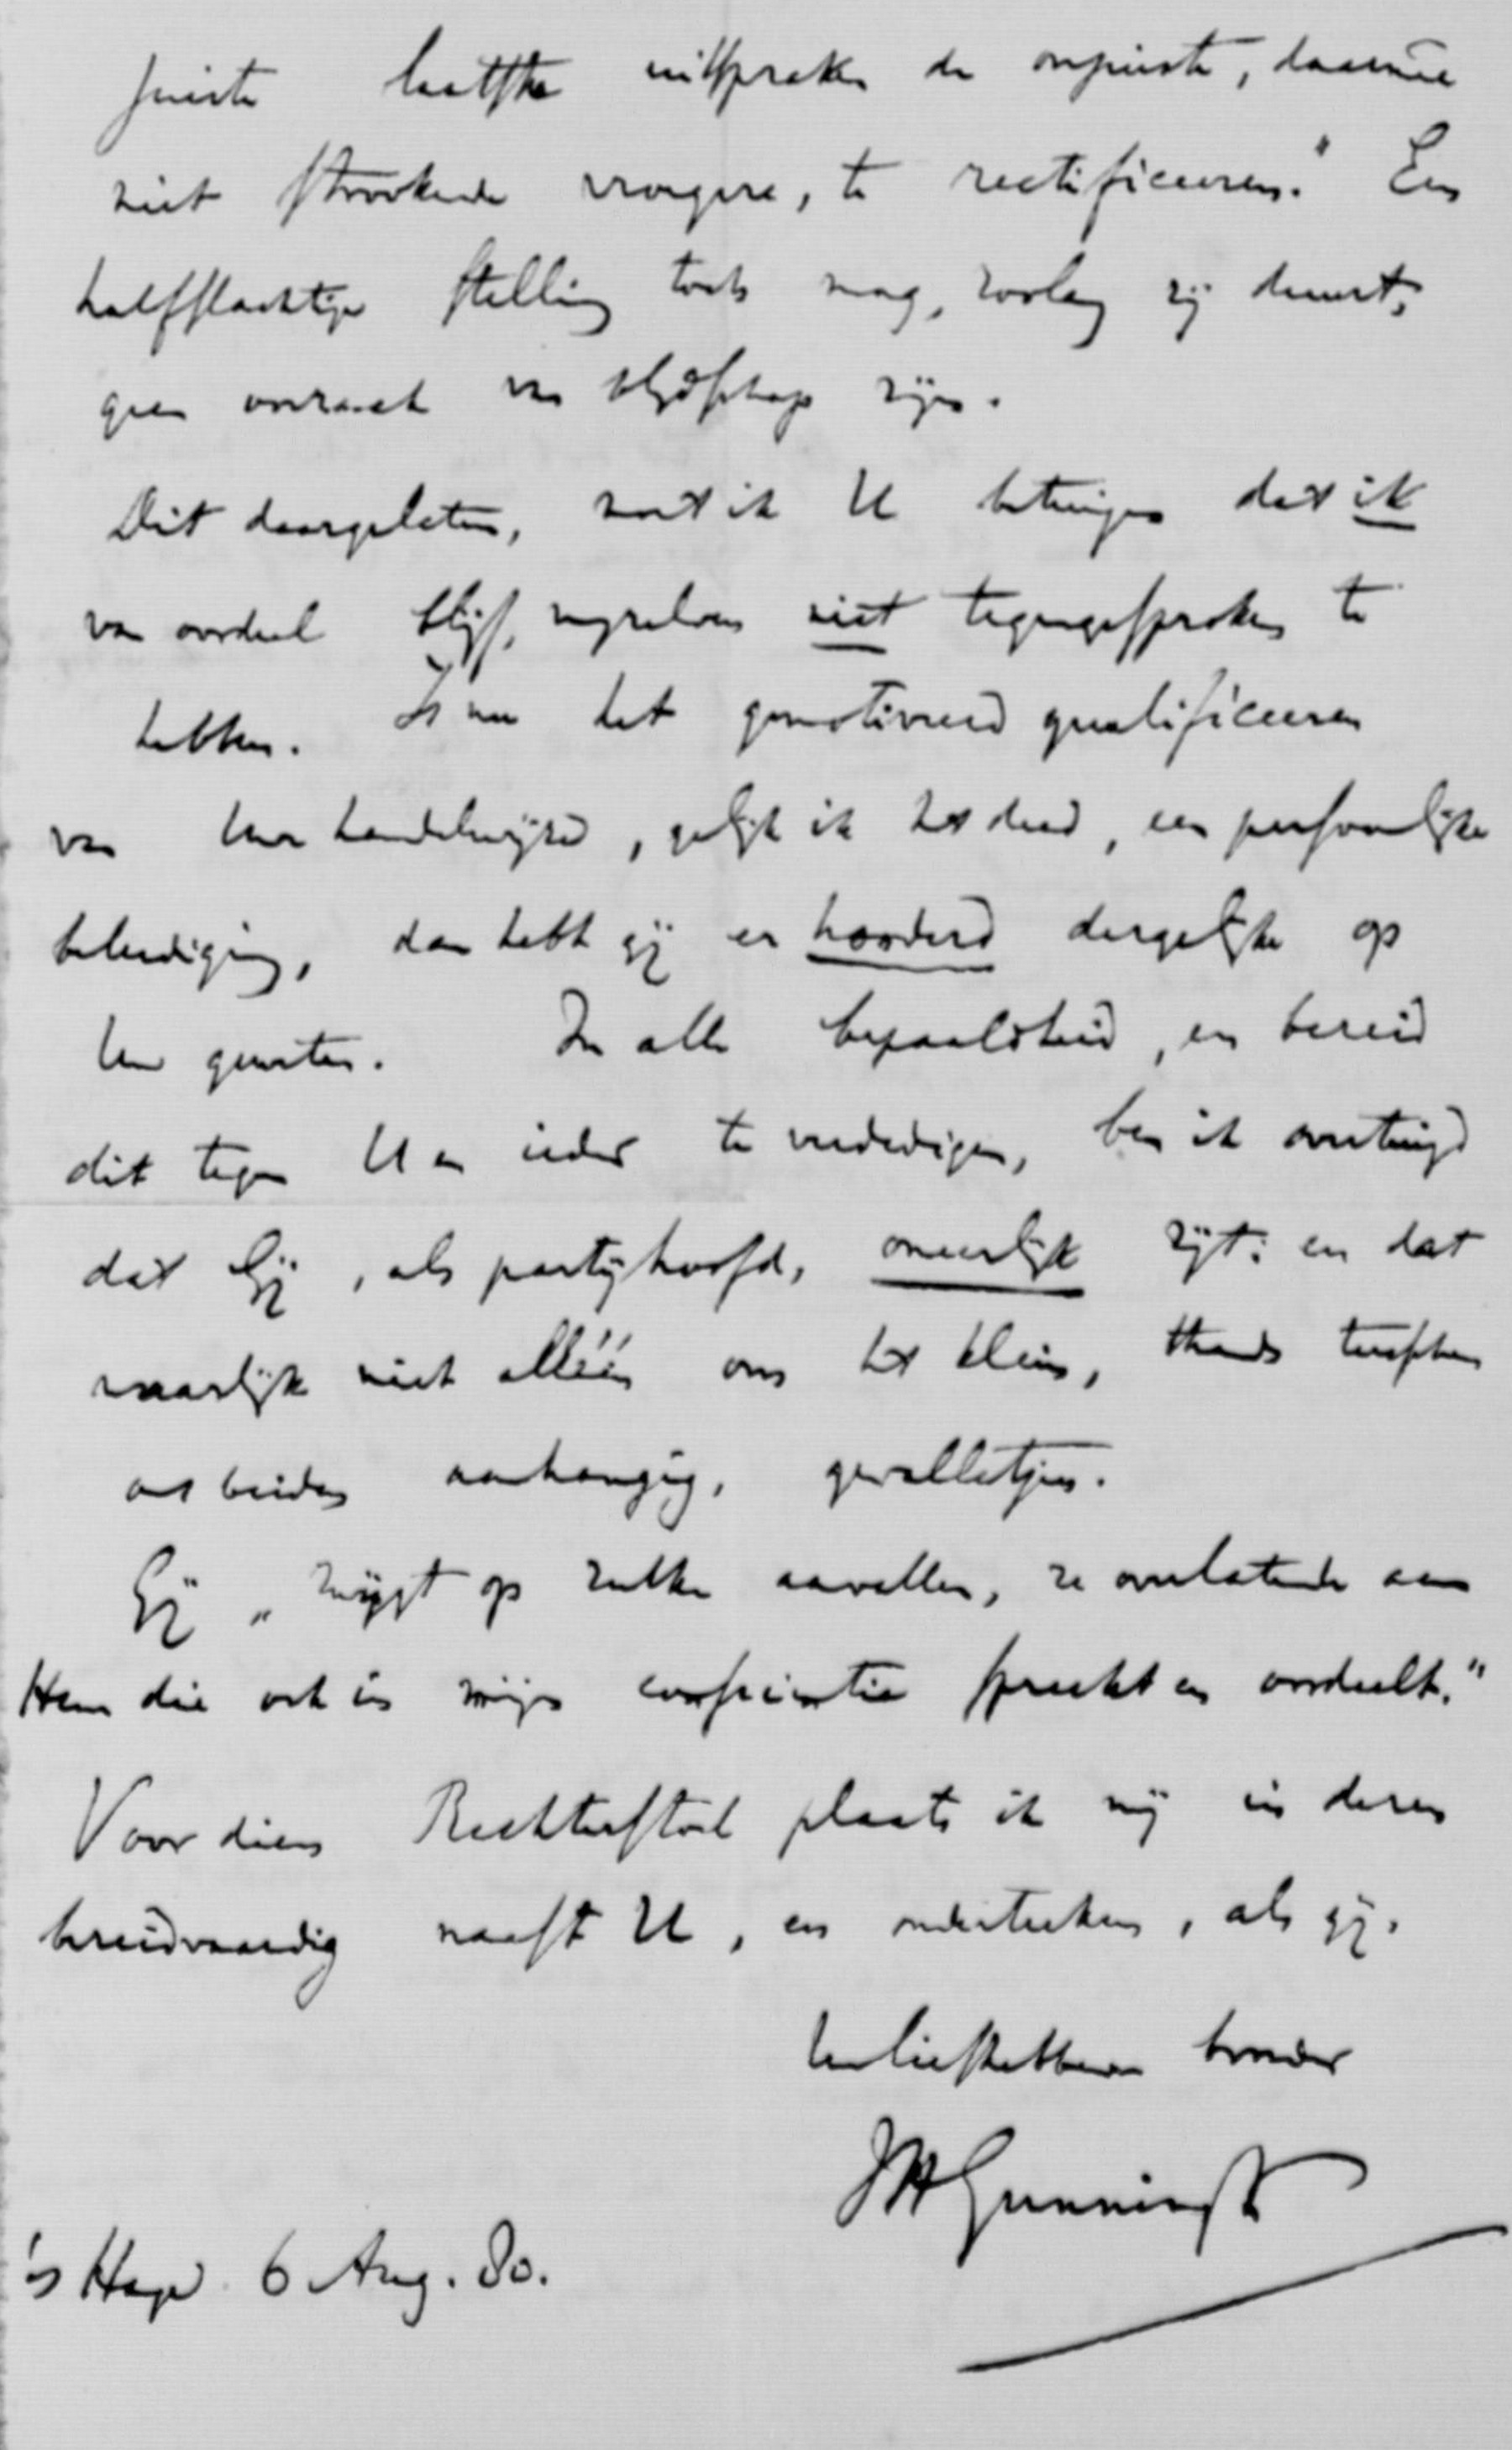 juiste laatste uitspraken de onjuiste, daarmee
niet strookende vroegere, te rectificeeren." Een
halfslachtige stelling toch mag, zoolang zij duurt,
geen oorzaak van blijdschap zijn.
Dit daargelaten, moet ik U betuigen dat ik
van oordeel blijf, mijzelven niet tegengesproken te
hebben. Is nu het gemotiveerd qualificeeren
van Uw handelwijze, gelijk ik het deed, een persoonlijke
beleediging, dan hebt gij er honderd dergelijke op
Uw geweten. In alle bepaaldheid, en bereid
dit tegen U en ieder te verdedigen, ben ik overtuigd
dat Gij, als partijhoofd, oneerlijk zijt: en dat
waarlijk niet alléén om het kleine, thans tusschen
ons beiden aanhangig, gevalletjen.
Gij "zwijgt op zulke aanvallen, ze overlatende aan
Hem die ook in mijn conscientie spreekt en oordeelt."
Voor dien Rechterstoel plaats ik mij in dezen
bereidvaardig naast U, en onderteeken, als gij,
Uw liefhebbende broeder
JH Gunning Jr
's Hage 6 Aug. 80.